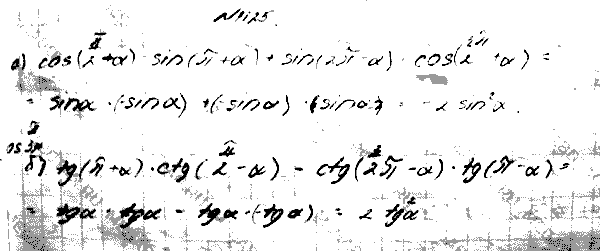 №1125.
а) cos(π/2+α)·sin(π+α)+sin(2π-α)·cos(3π/2+α)=
= sinα·(-sinα)+(-sinα)·(sinα)= -2 sin²α.
б) tg(π+α)·ctg(π/2-α) - ctg(3/2π-α)·tg(π-α)=
= tgα·tgα - tgα·(-tgα) = 2 tg²α